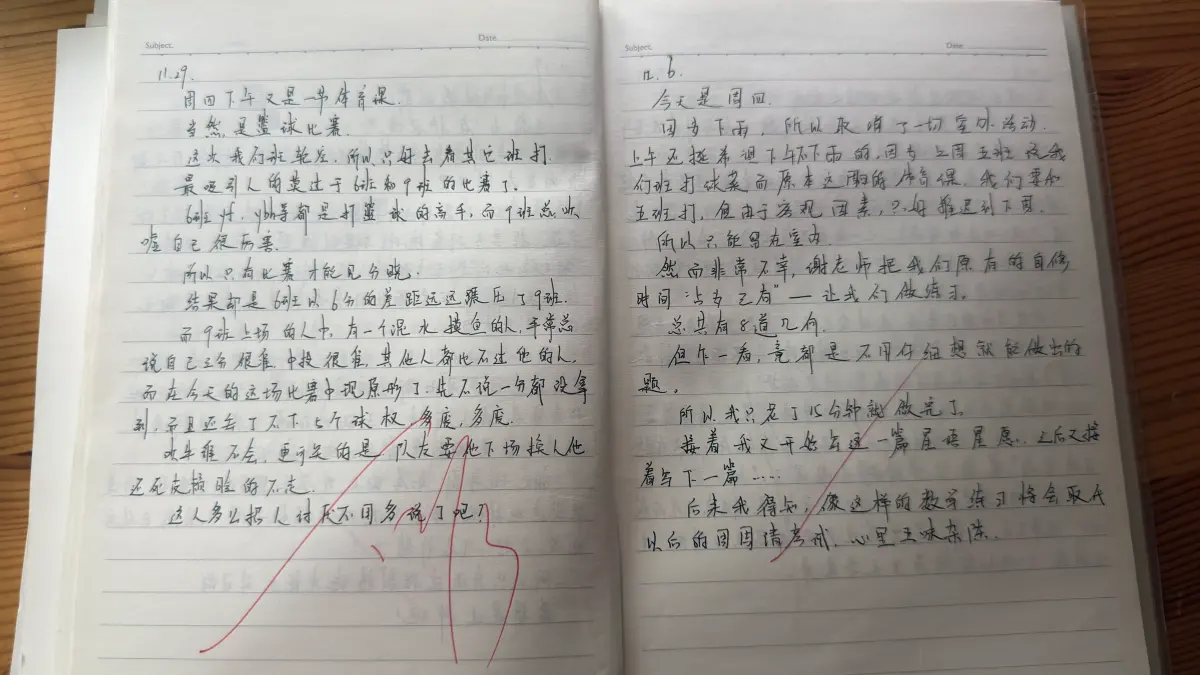 Subject.
Date
11.29.
周四下午又是一节体育课.
当然,是篮球比赛.
这次我们班轮空.所以只好去看其它班打.
最吸引人的莫过于6班和9班的比赛了.
6班yf.ybh等都是打篮球的高手,而9班总吹
嘘自己很厉害.
所以只有比赛才能见分晓.
结果却是6班以6分的差距远远碾压了9班.
而9班上场的人中,有一个混水摸鱼的人,平常总
说自己三分很准,中投很准,其他人都比不过他的人.
而在今天的这场比赛中现原形了.先不说一分都没拿
到,而且还丢了不下七个球权,多度,多度.
吹牛谁不会,更可笑的是.队友要他下场换人他
还死皮赖脸的不走.
这人多么招人讨厌不用多说了吧?
Subject.
Date
12.6.
今天是周四.
因为下雨,所以取消了一切室外活动.
上午还挺希望下午不下雨的,因为上周五班该我
们班打球
而原本这周的体育课.我们要和
五班打,但由于客观因素,只好推迟到下周.
所以只能留在室内.
然而非常不幸,谢老师把我们原有的自修
时间"占为己有"——让我们做练习.
总共有8道几何.
但乍一看,竟都是不用仔细想就能做出的
题.
所以我只花了15分钟就做完了.
接着我又开始写这一篇星语星愿.之后又接
着写下一篇……
后来我得知,像这样的数学练习将会取代
以后的周周清考试.心里五味杂陈.